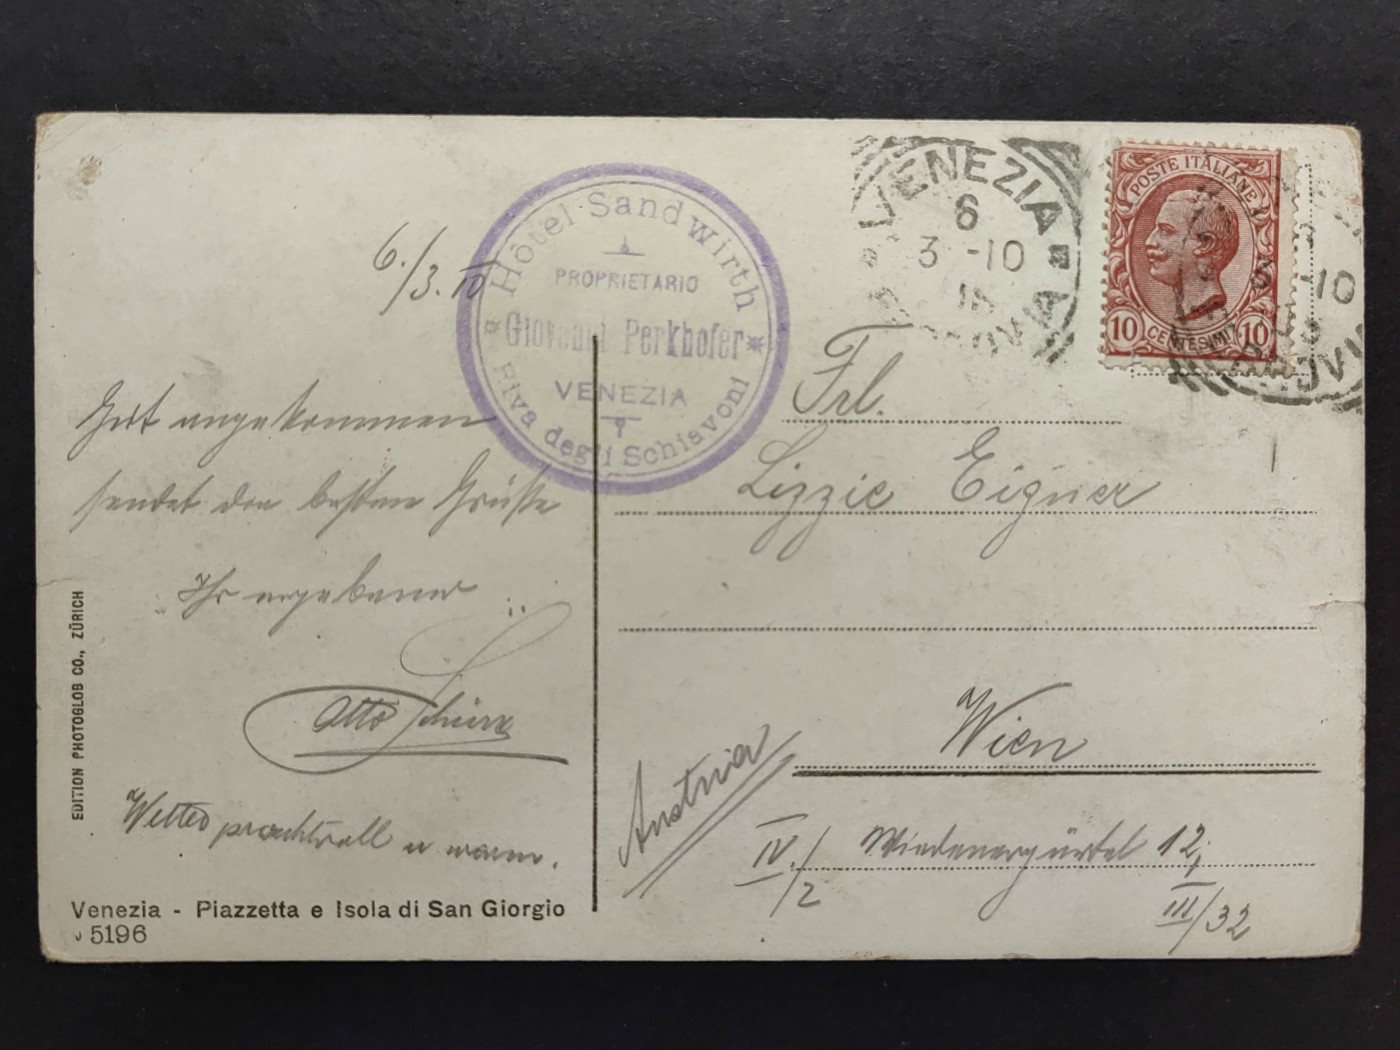 6./3.10
Hôtel Sandwirth
PROPRIETARIO
Giovanni Perkhofer
VENEZIA
Riva degli Schiavoni
VENEZIA
6
3 -10
POSTE ITALIANE
10 CENTESIMI 10
Frl.
Lizzie Eigner
Wien
Austria
IV./2 Wiednergürtel 12,
III/32
Gut angekommen
sendet die besten Grüße
Ihr ergebener
Otto
Wetter prachtvoll u warm.
EDITION PHOTOGLOB CO., ZÜRICH
Venezia - Piazzetta e Isola di San Giorgio
5196